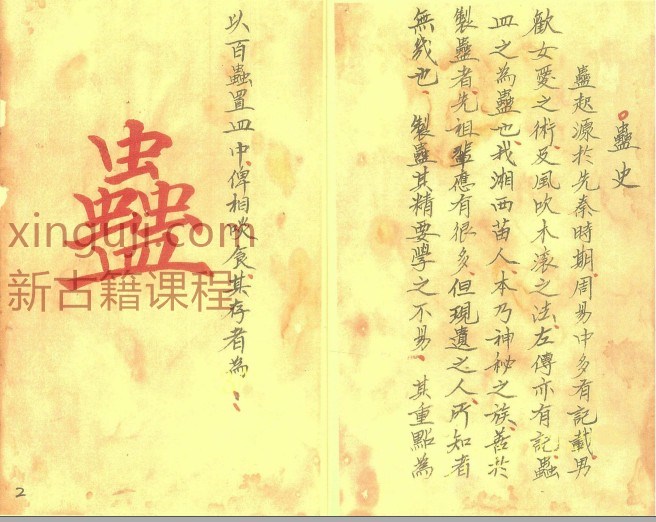 蠱史
蠱起源於先秦時期周易中多有記載男
歡女愛之術及風吹木滾之法左傳亦有記蟲
皿之為蠱也我湘西苗人本乃神秘之族善於
製蠱者先祖輩應有很多但現遺之人所知者
無幾也 製蠱其精要學之不易 其重點為
以百蟲置皿中俾相啖食其存者為
蠱
xinguji.com
新古籍课程
2